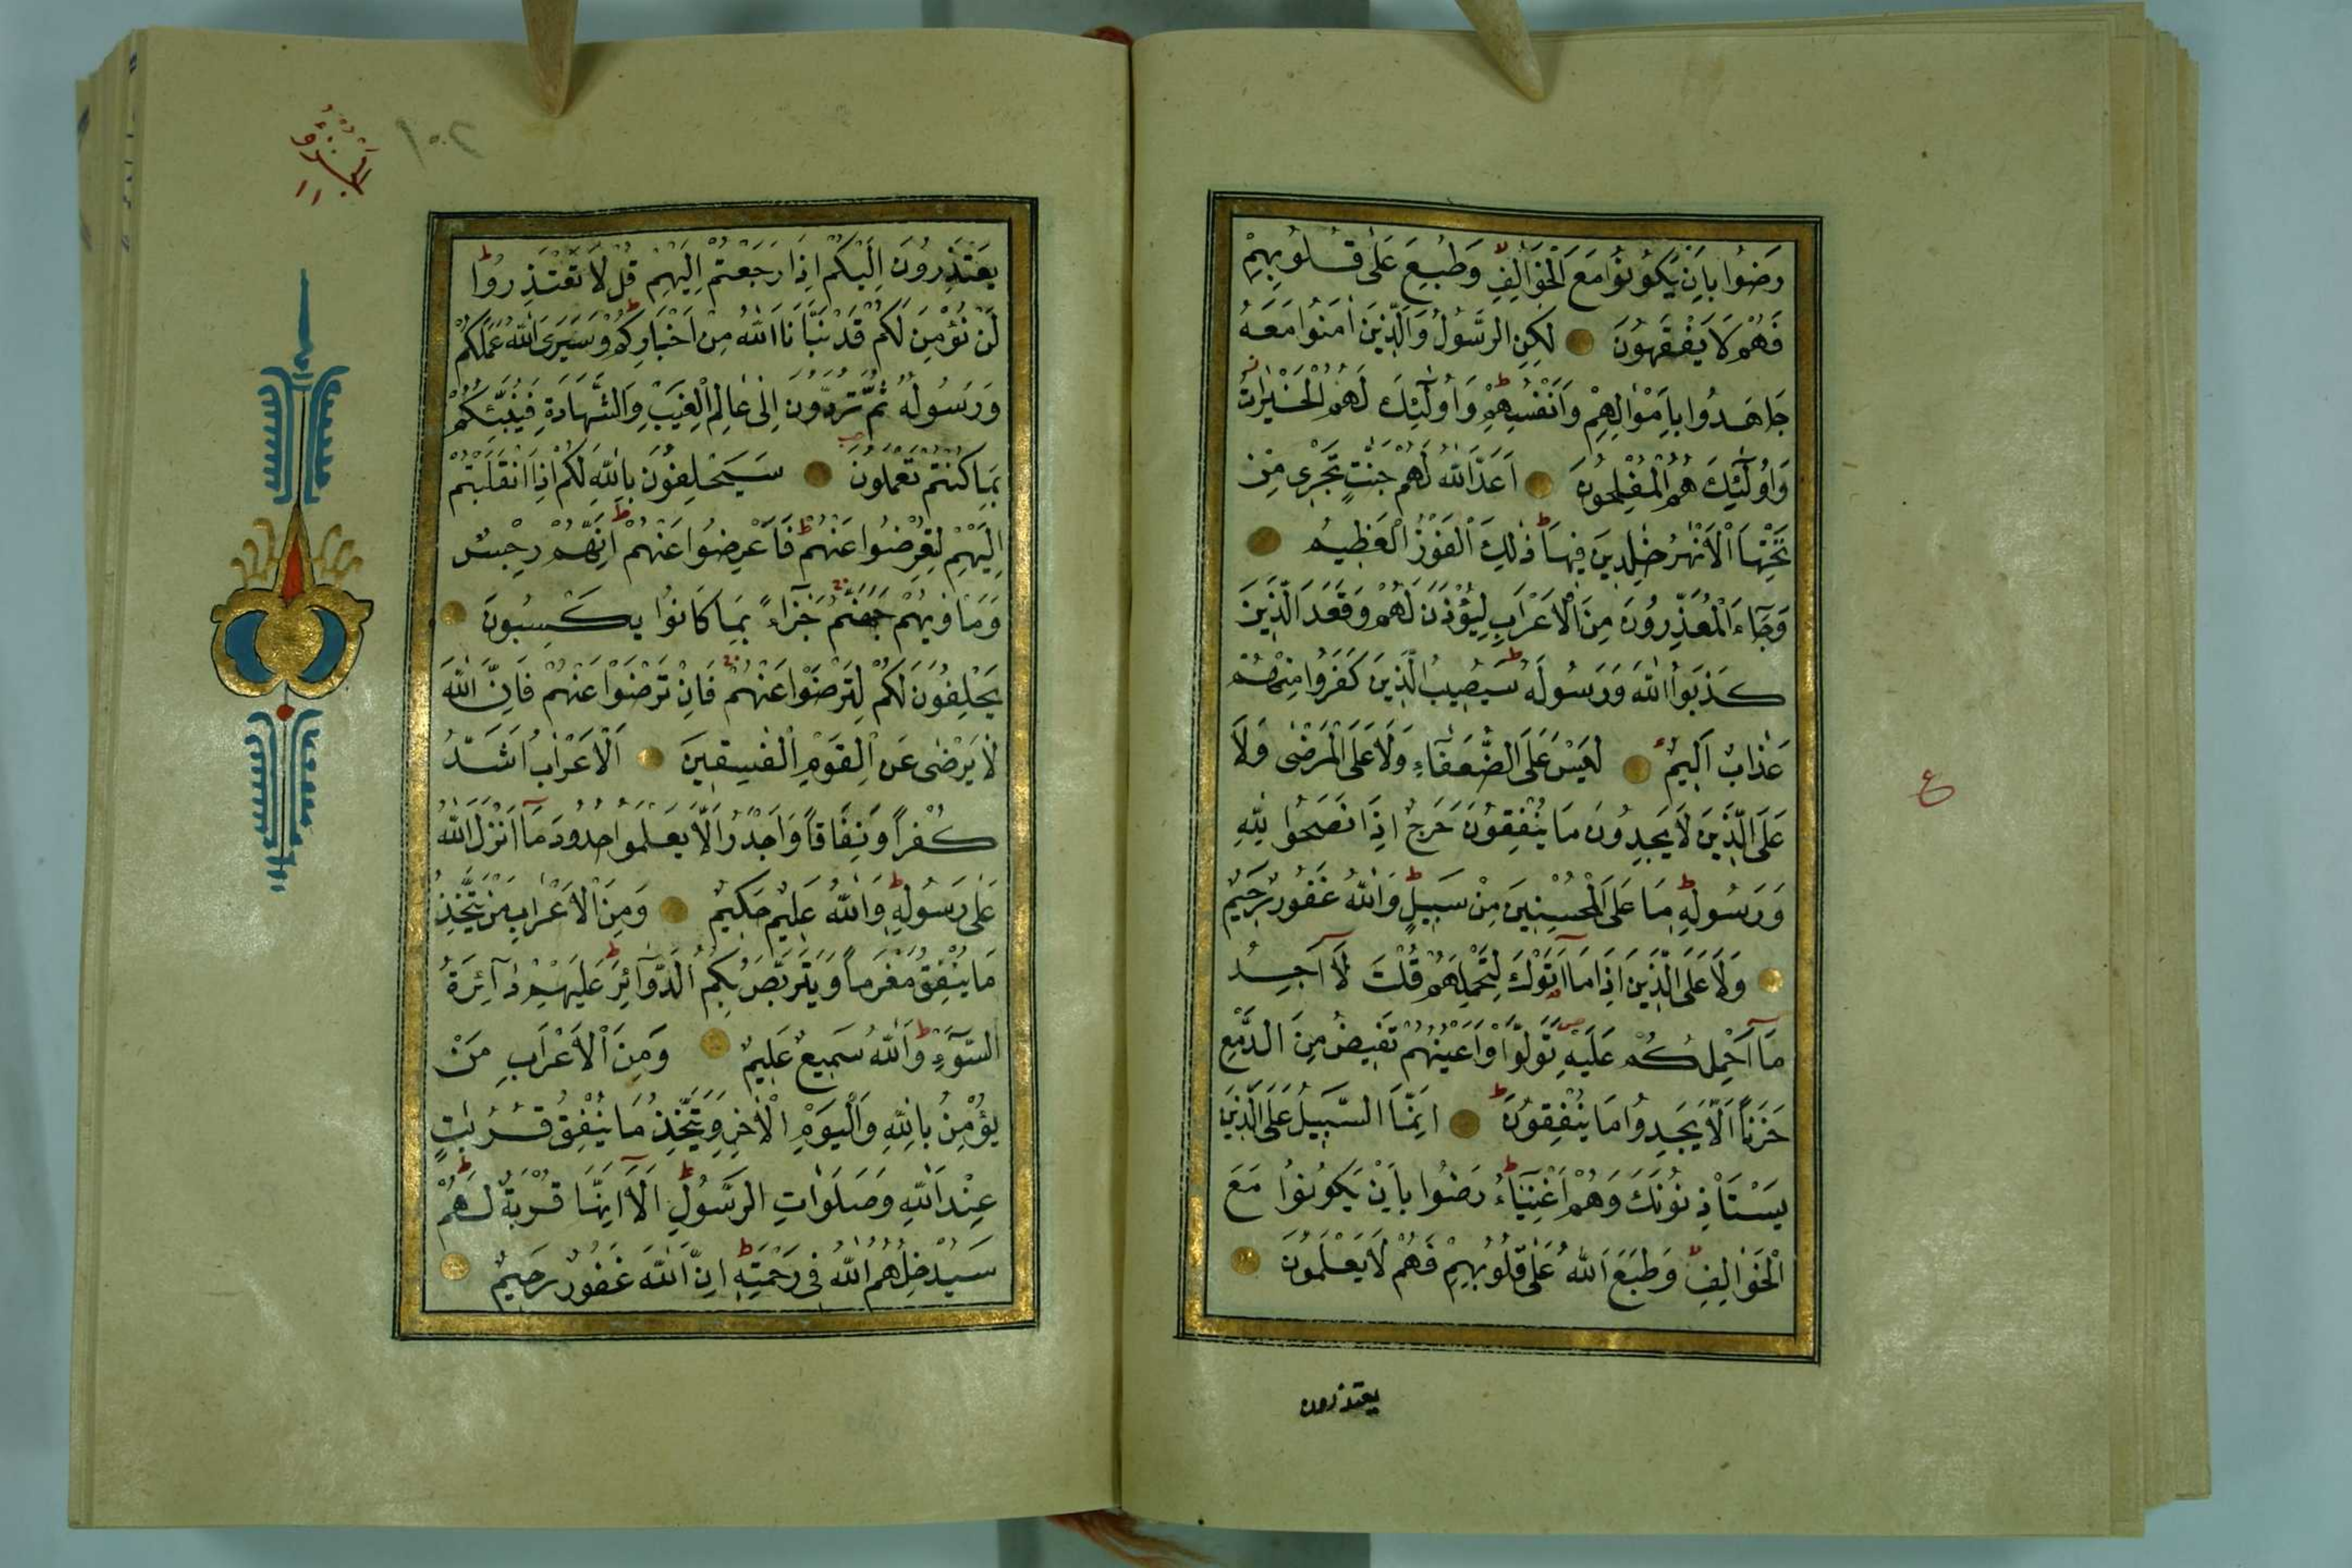 رَضُوا بِاَنْ يَكُونُوا مَعَ الْخَوَالِفِ وَطُبِعَ عَلٰى قُلُوبِهِمْ
فَهُمْ لَا يَفْقَهُونَ لٰكِنِ الرَّسُولُ وَالَّذِينَ اٰمَنُوا مَعَهُ
جَاهَدُوا بِاَمْوَالِهِمْ وَاَنْفُسِهِمْ وَاُولٰٓئِكَ لَهُمُ الْخَيْرَاتُ
وَاُولٰٓئِكَ هُمُ الْمُفْلِحُونَ اَعَدَّ اللّٰهُ لَهُمْ جَنَّاتٍ تَجْرِى مِنْ
تَحْتِهَا الْاَنْهٰرُ خٰلِدِينَ فِيهَا ذٰلِكَ الْفَوْزُ الْعَظِيمُ
وَجَٓاءَ الْمُعَذِّرُونَ مِنَ الْاَعْرَابِ لِيُؤْذَنَ لَهُمْ وَقَعَدَ الَّذِينَ
كَذَبُوا اللّٰهَ وَرَسُولَهُ سَيُصِيبُ الَّذِينَ كَفَرُوا مِنْهُمْ
عَذَابٌ اَلِيمٌ لَيْسَ عَلَى الضُّعَفَٓاءِ وَلَا عَلَى الْمَرْضٰى وَلَا
عَلَى الَّذِينَ لَا يَجِدُونَ مَا يُنْفِقُونَ حَرَجٌ اِذَا نَصَحُوا لِلّٰهِ
وَرَسُولِهِ مَا عَلَى الْمُحْسِنِينَ مِنْ سَبِيلٍ وَاللّٰهُ غَفُورٌ رَحِيمٌ
وَلَا عَلَى الَّذِينَ اِذَا مَٓا اَتَوْكَ لِتَحْمِلَهُمْ قُلْتَ لَٓا اَجِدُ
مَٓا اَحْمِلُكُمْ عَلَيْهِ تَوَلَّوْا وَاَعْيُنُهُمْ تَفِيضُ مِنَ الدَّمْعِ
حَزَنًا اَلَّا يَجِدُوا مَا يُنْفِقُونَ اِنَّمَا السَّبِيلُ عَلَى الَّذِينَ
يَسْتَاْذِنُونَكَ وَهُمْ اَغْنِيَٓاءُ رَضُوا بِاَنْ يَكُونُوا مَعَ
الْخَوَالِفِ وَطَبَعَ اللّٰهُ عَلٰى قُلُوبِهِمْ فَهُمْ لَا يَعْلَمُونَ
يعتذرون
ع
الجزؤ
١١
يَعْتَذِرُونَ اِلَيْكُمْ اِذَا رَجَعْتُمْ اِلَيْهِمْ قُلْ لَا تَعْتَذِرُوا
لَنْ نُؤْمِنَ لَكُمْ قَدْ نَبَّاَنَا اللّٰهُ مِنْ اَخْبَارِكُمْ وَسَيَرَى اللّٰهُ عَمَلَكُمْ
وَرَسُولُهُ ثُمَّ تُرَدُّونَ اِلٰى عَالِمِ الْغَيْبِ وَالشَّهَادَةِ فَيُنَبِّئُكُمْ
بِمَا كُنْتُمْ تَعْمَلُونَ سَيَحْلِفُونَ بِاللّٰهِ لَكُمْ اِذَا انْقَلَبْتُمْ
اِلَيْهِمْ لِتُعْرِضُوا عَنْهُمْ فَاَعْرِضُوا عَنْهُمْ اِنَّهُمْ رِجْسٌ
وَمَاْوٰيهُمْ جَهَنَّمُ جَزَٓاءً بِمَا كَانُوا يَكْسِبُونَ
يَحْلِفُونَ لَكُمْ لِتَرْضَوْا عَنْهُمْ فَاِنْ تَرْضَوْا عَنْهُمْ فَاِنَّ اللّٰهَ
لَا يَرْضٰى عَنِ الْقَوْمِ الْفٰسِقِينَ اَلْاَعْرَابُ اَشَدُّ
كُفْرًا وَنِفَاقًا وَاَجْدَرُ اَلَّا يَعْلَمُوا حُدُودَ مَٓا اَنْزَلَ اللّٰهُ
عَلٰى رَسُولِهِ وَاللّٰهُ عَلِيمٌ حَكِيمٌ وَمِنَ الْاَعْرَابِ مَنْ يَتَّخِذُ
مَا يُنْفِقُ مَغْرَمًا وَيَتَرَبَّصُ بِكُمُ الدَّوَٓائِرَ عَلَيْهِمْ دَٓائِرَةُ
السَّوْءِ وَاللّٰهُ سَمِيعٌ عَلِيمٌ وَمِنَ الْاَعْرَابِ مَنْ
يُؤْمِنُ بِاللّٰهِ وَالْيَوْمِ الْاٰخِرِ وَيَتَّخِذُ مَا يُنْفِقُ قُرُبٰتٍ
عِنْدَ اللّٰهِ وَصَلَوَاتِ الرَّسُولِ اَلَٓا اِنَّهَا قُرْبَةٌ لَهُمْ
سَيُدْخِلُهُمُ اللّٰهُ فِى رَحْمَتِهِ اِنَّ اللّٰهَ غَفُورٌ رَحِيمٌ